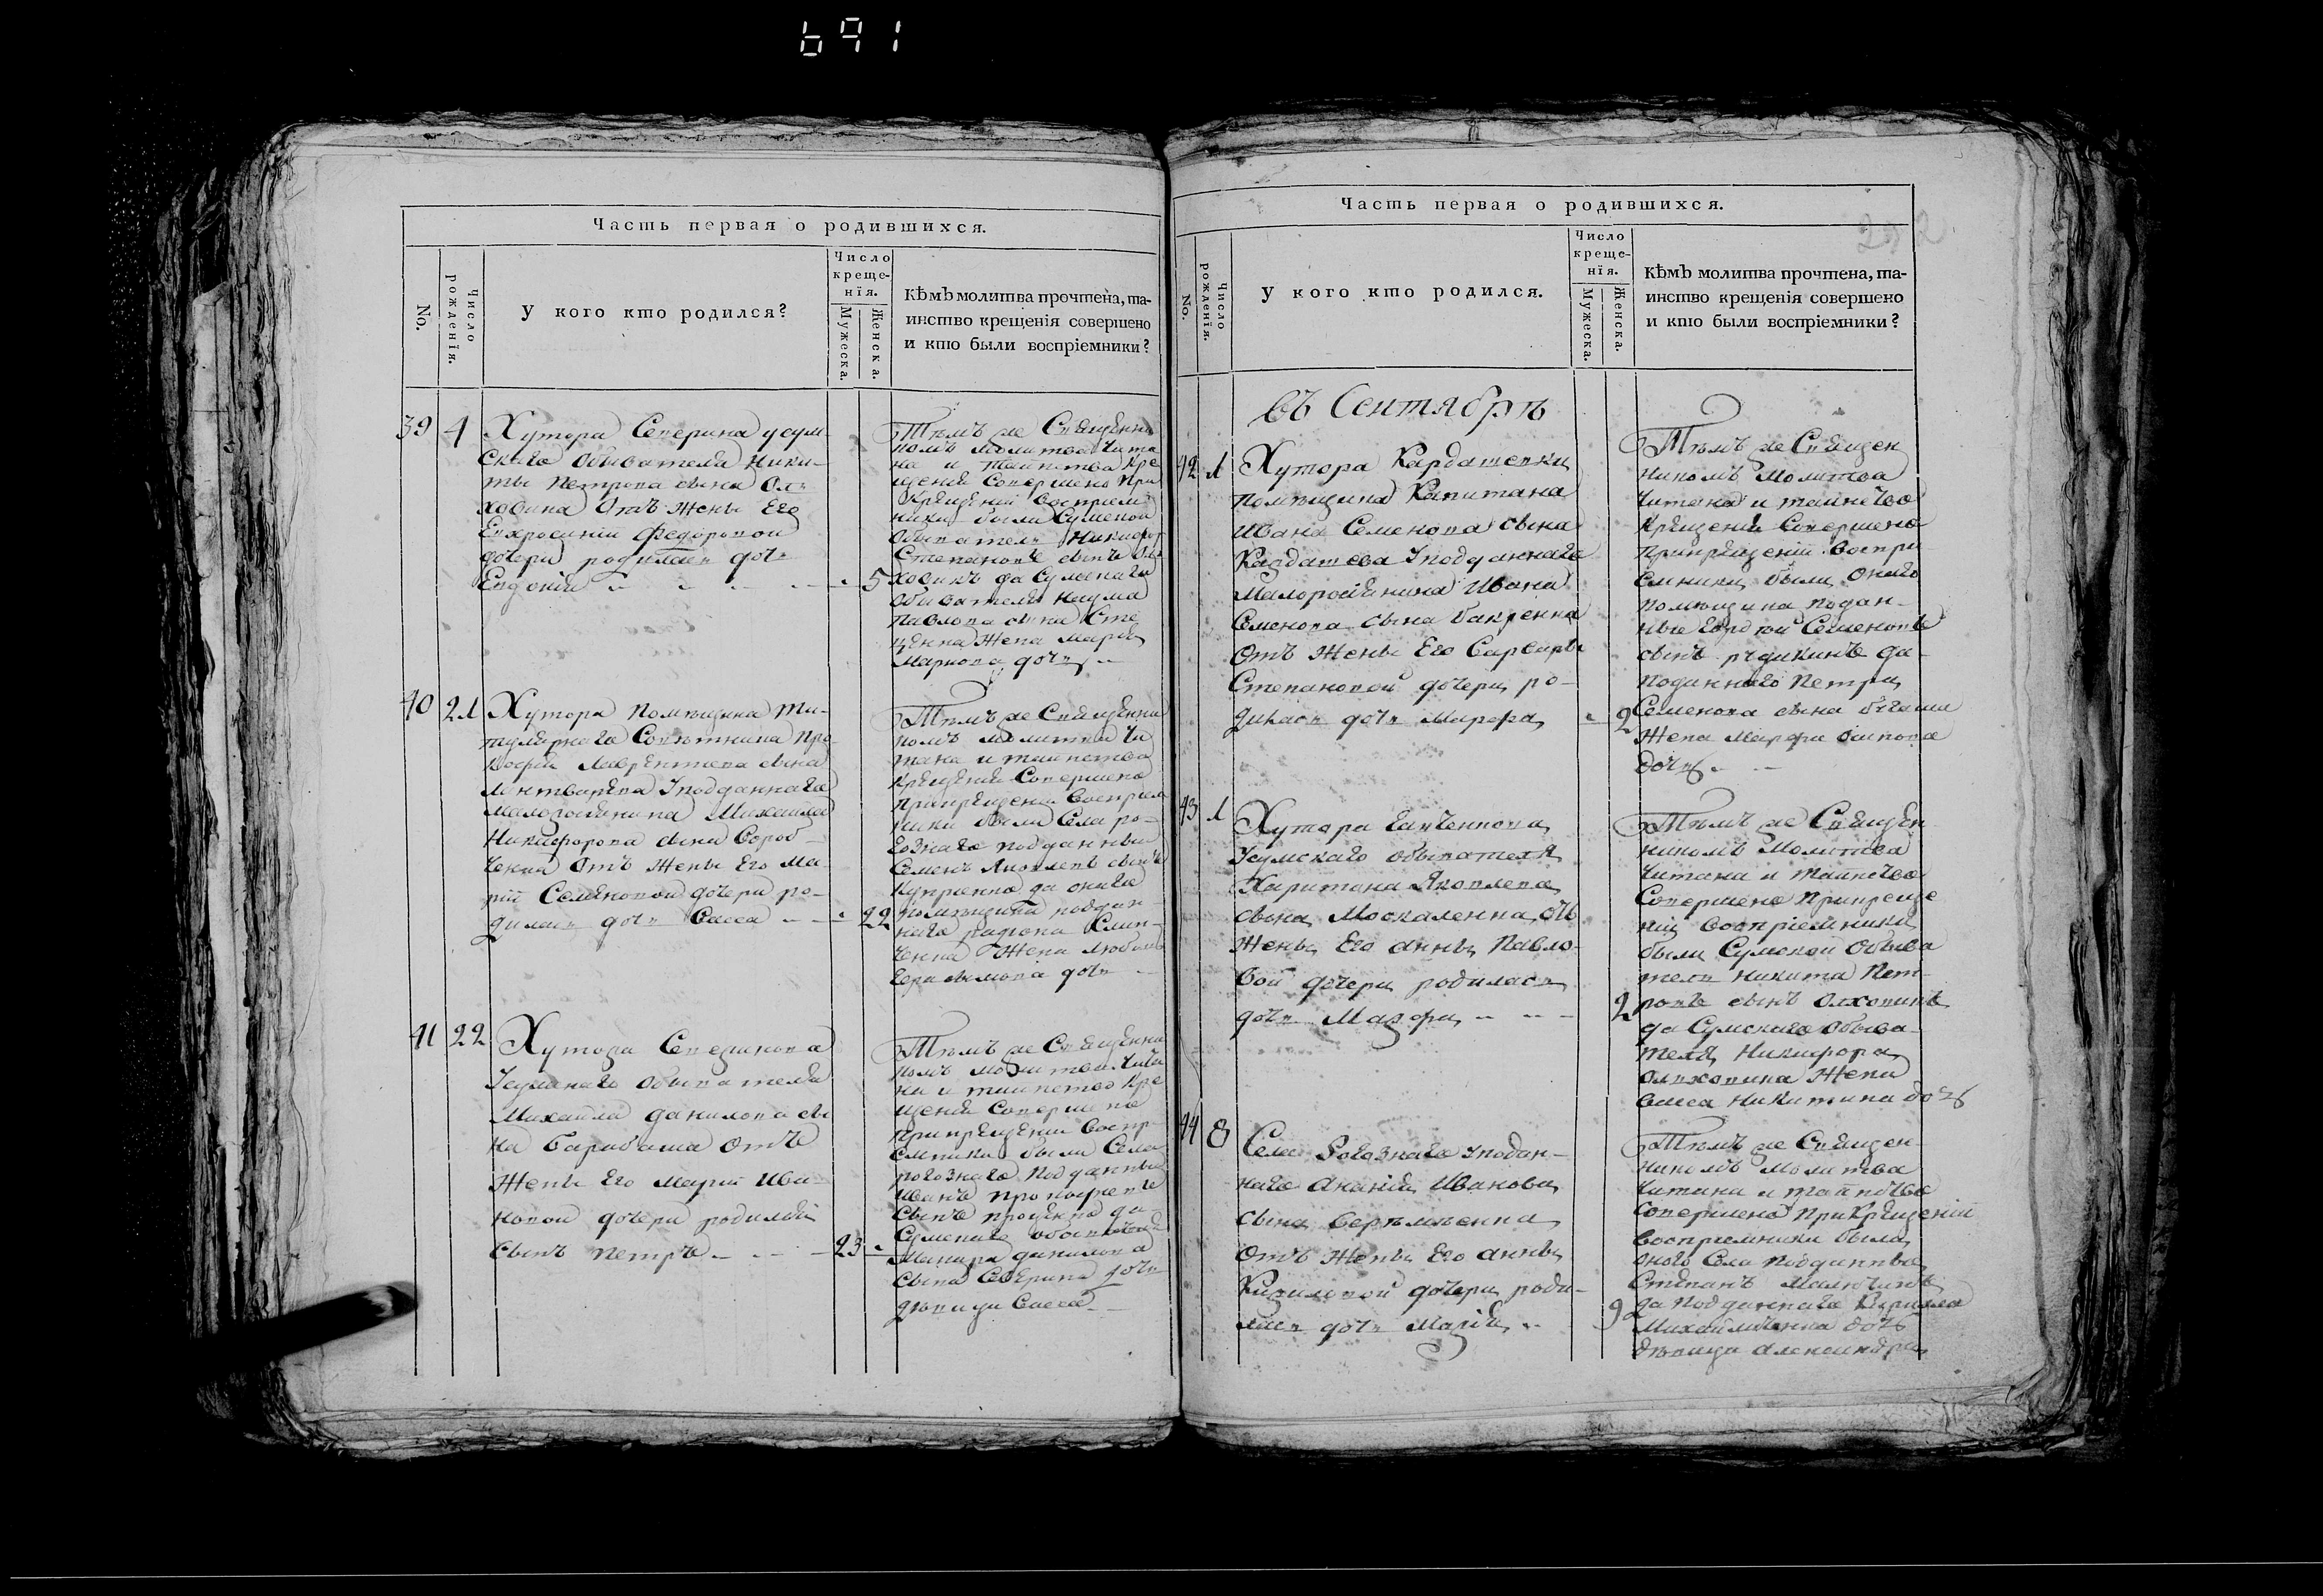 691
Часть первая о родившихся.
No.
Число рожденїя.
У кого кто родился?
Число
креще-
нїя.
Мужеска.
Женска.
Кѣмъ молитва прочтена, та-
инство крещенїя совершено
и кто были воспрїемники?
39 4 Хутора Северина усум
скаго обивателя Ники-
ты Петрова сына Ол
ховика отъ жены его
Евхросиніи Федоровой
дочери родилась дочь
Евдокія 5
Тѣмъ же Священни
комъ молитва чита
на и таинство кре
щенія совершено при
крещеніи восприем
ники были Сумской
обыватель Никифор
Степановъ сынъ Ол
ховикъ да Сумскаго
обивателя Наума
Павлова сына Сте
ценка жена Марія
Маркова дочь
40 21 Хутора помѣщика ти-
тулярнаго Советника Про
кофія Лаврентиева сына
Линтварева уподданнаго
малоросіянина Михайла
Никифорова сына Сороб
ченка отъ жены его Ма
рій Семеновой дочери ро-
дилась дочь Васса 22
Тѣмъ же Священни
комъ молитва чи
тана и таинство
крещенія совершено
прикрещеніи восприем
ники были Села ро-
гознаго подданный
Семенъ Яковлевъ сынъ
Купріенко да онаго
помѣщика поддан
наго Радіона Клин-
ченка жена Любовь
дочь
41 22 Хутора Северинова
Усумскаго обывателя
Михайла Данилова сы
на Барабаша отъ
жены его Маріи Ива
новой дочери родился
сынъ Петръ 23
Тѣмъ же Священни
комъ молитва чита
на и таинство кре
щенія совершено
прикрещеніи воспр
емники были Села
рогознаго подданный
Иванъ Прокофьевъ
сынъ да
Сумскаго обывателя
Макара Данилова
сына Северина дочь
дѣвица Васса
Часть первая о родившихся.
No.
Число рожденїя.
У кого кто родился.
Число
креще-
нїя.
Мужеска.
Женска.
Кѣмъ молитва прочтена, та-
инство крещенїя совершено
и кто были воспрїемники?
въ Сентябрѣ
42 1 Хутора Кардашевки
помѣщика Капитана
Ивана Семенова сына
Кардашева уподданнаго
Малоросіянина Ивана
Семенова сына
отъ жены его Варвары
Степановой дочери ро-
дилась дочь Марфа 2
Тѣмъ же Священ
никомъ молитва
читана и таинство
крещенія совершено
прикрещеніи воспри
емники были онаго
помѣщика подан-
ные Гордѣй Семеновъ
сынъ да
поданнаго Петра
Семенова сына
жена Марфа Осипова
дочь
43 1 Хутора
Усумскаго обывателя
Харитона Яковлева
сына Москаленка отъ
жены его Анны Павло
вой дочери родилась
дочь Мазфа 2
Тѣмъ же Священ
никомъ молитва
читана и таинство
совершено прикреще
ніи восприемники
были Сумской обыва
тель Никита Пет-
ровъ сынъ Олховикъ
да Сумскаго обыва-
теля Никифора
Олховика жена
Васса Никитина дочь
44 8 Села Рогознаго уподан-
наго Ананія Иванова
сына
отъ жены его Анны
Кириловой дочери роди-
лась дочь Марія 9
Тѣмъ же Священ
никомъ молитва
читана и таинство
совершено при крещеніи
восприемники были
оного Села подданные
Степанъ
да подданнаго Кирила
Михайличенка дочь
дѣвица Александра